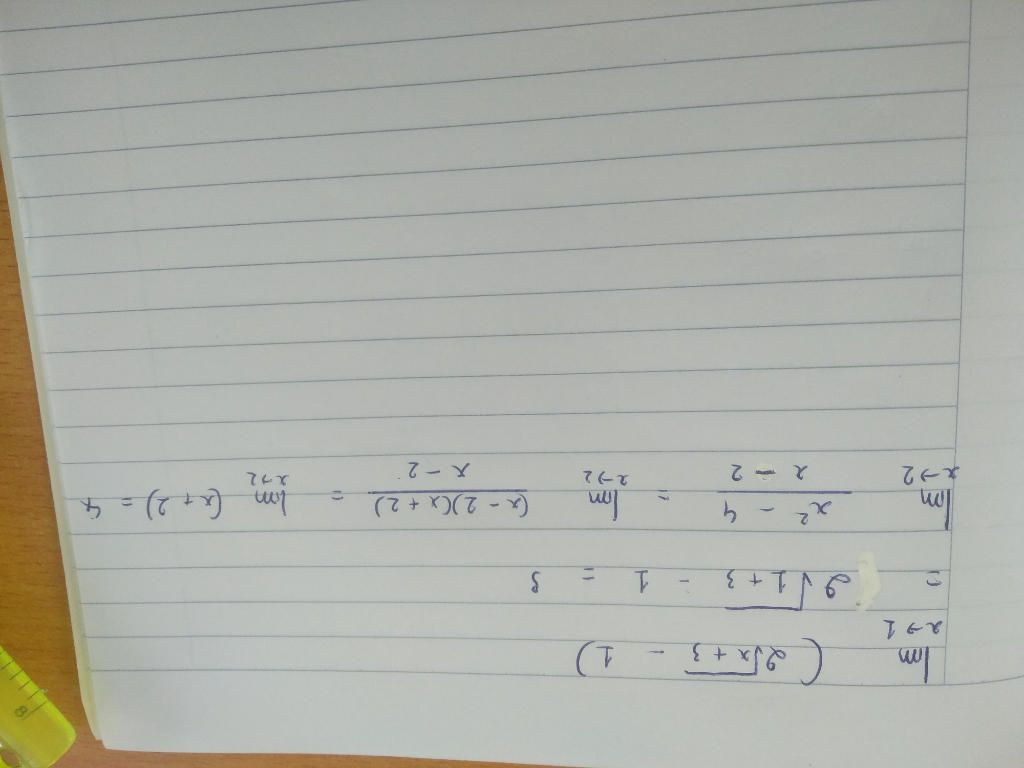 lim x→1 (2√x+3 - 1)
= 2√1+3 - 1 = 3
lim x→2 x² - 4 / x - 2 = lim x→2 (x-2)(x+2) / x - 2 = lim x→2 (x+2) = 4
8